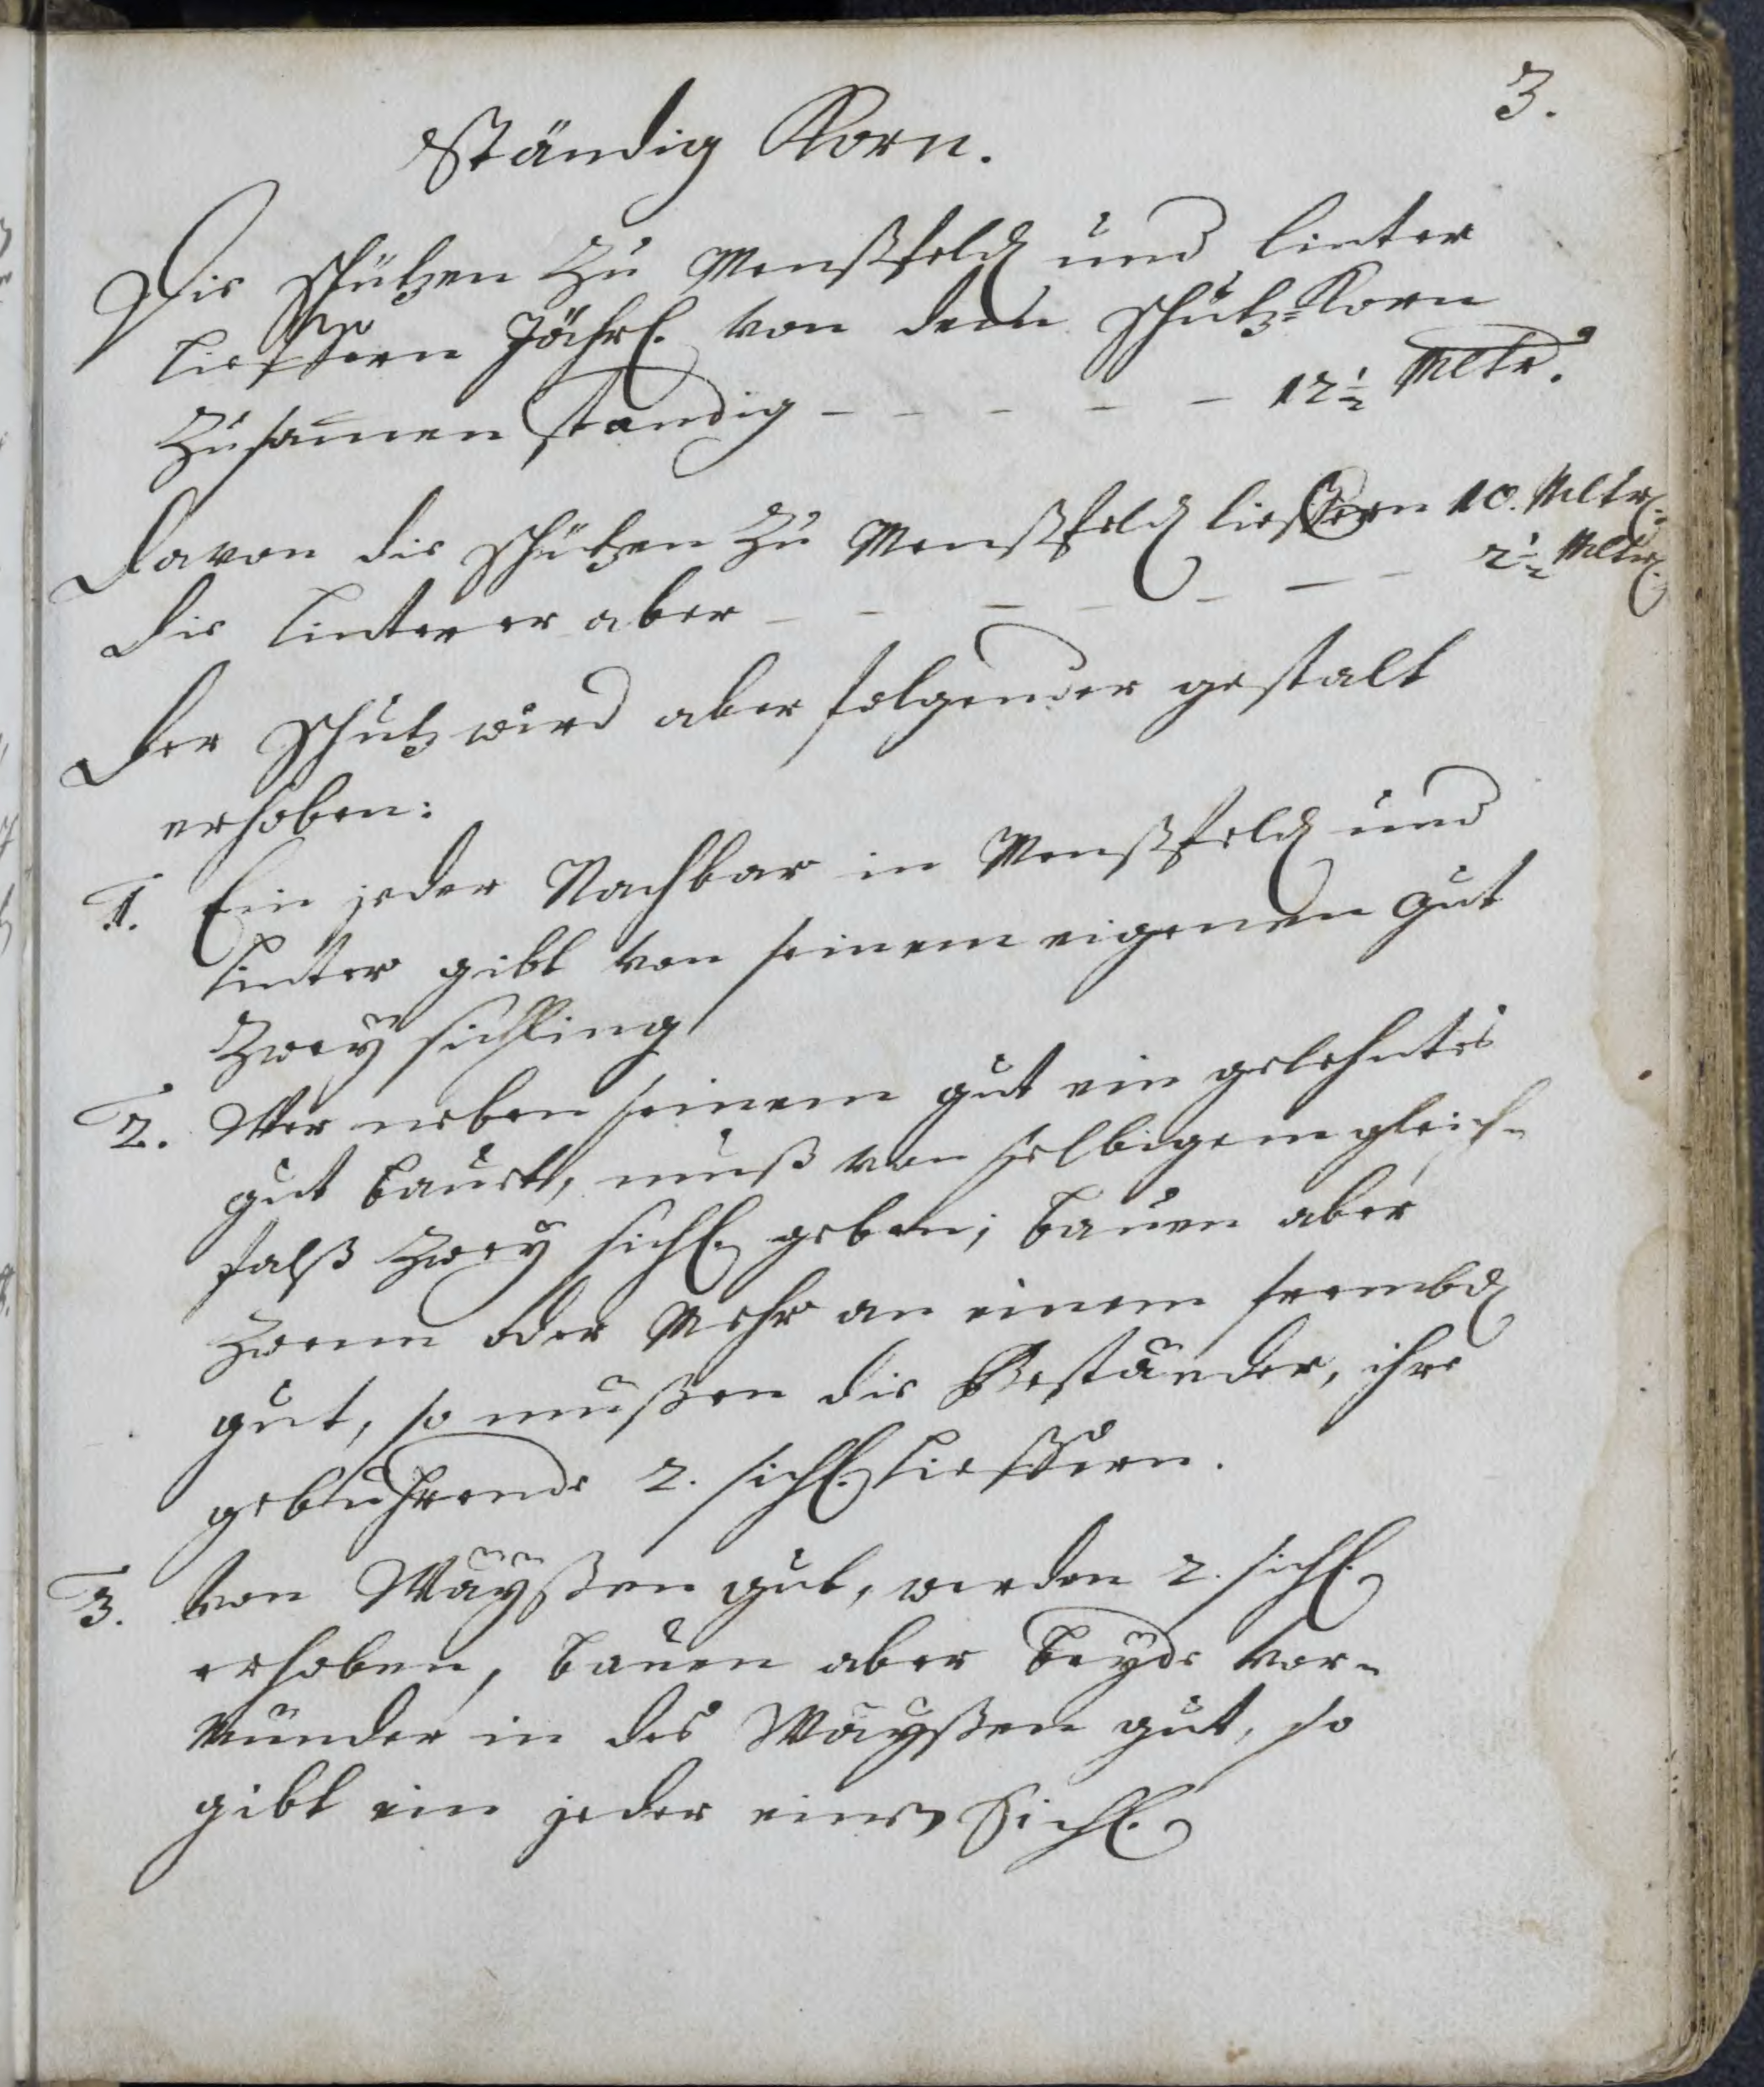 3.
Ständig Korn.
Die schützen zu Menßfeld und linter
lieffern Jährl. von dem schutz=Korn
zusamen standig - - - - - 12½ Mltr.
Davon die schützen zu Menßfeld lieffern 10. Mltr.
die linterer aber - - - - - - - 2½ Mltr.
Der schutz wird aber folgender gestalt
erhoben:
1. Ein jeder Nachbar in Menßfeld und
linter gibt von seinem eigenen gut
zwey sichling
2. Wer neben seinem gut ein gelehntes
gut bauet, muß von selbigem gleich=
falß zwey sichl. geben; bauen aber
zween oder Mehr an einem frembd
gut, so mußen die Beständer, ihre
gebührende 2. sichl. lieffern.
3. von Wäyßen gut, werden 2. sichl.
erhoben, bauen aber beyde vor=
münder in des Wäyßen gut, so
gibt ein jeder eine Sichl.